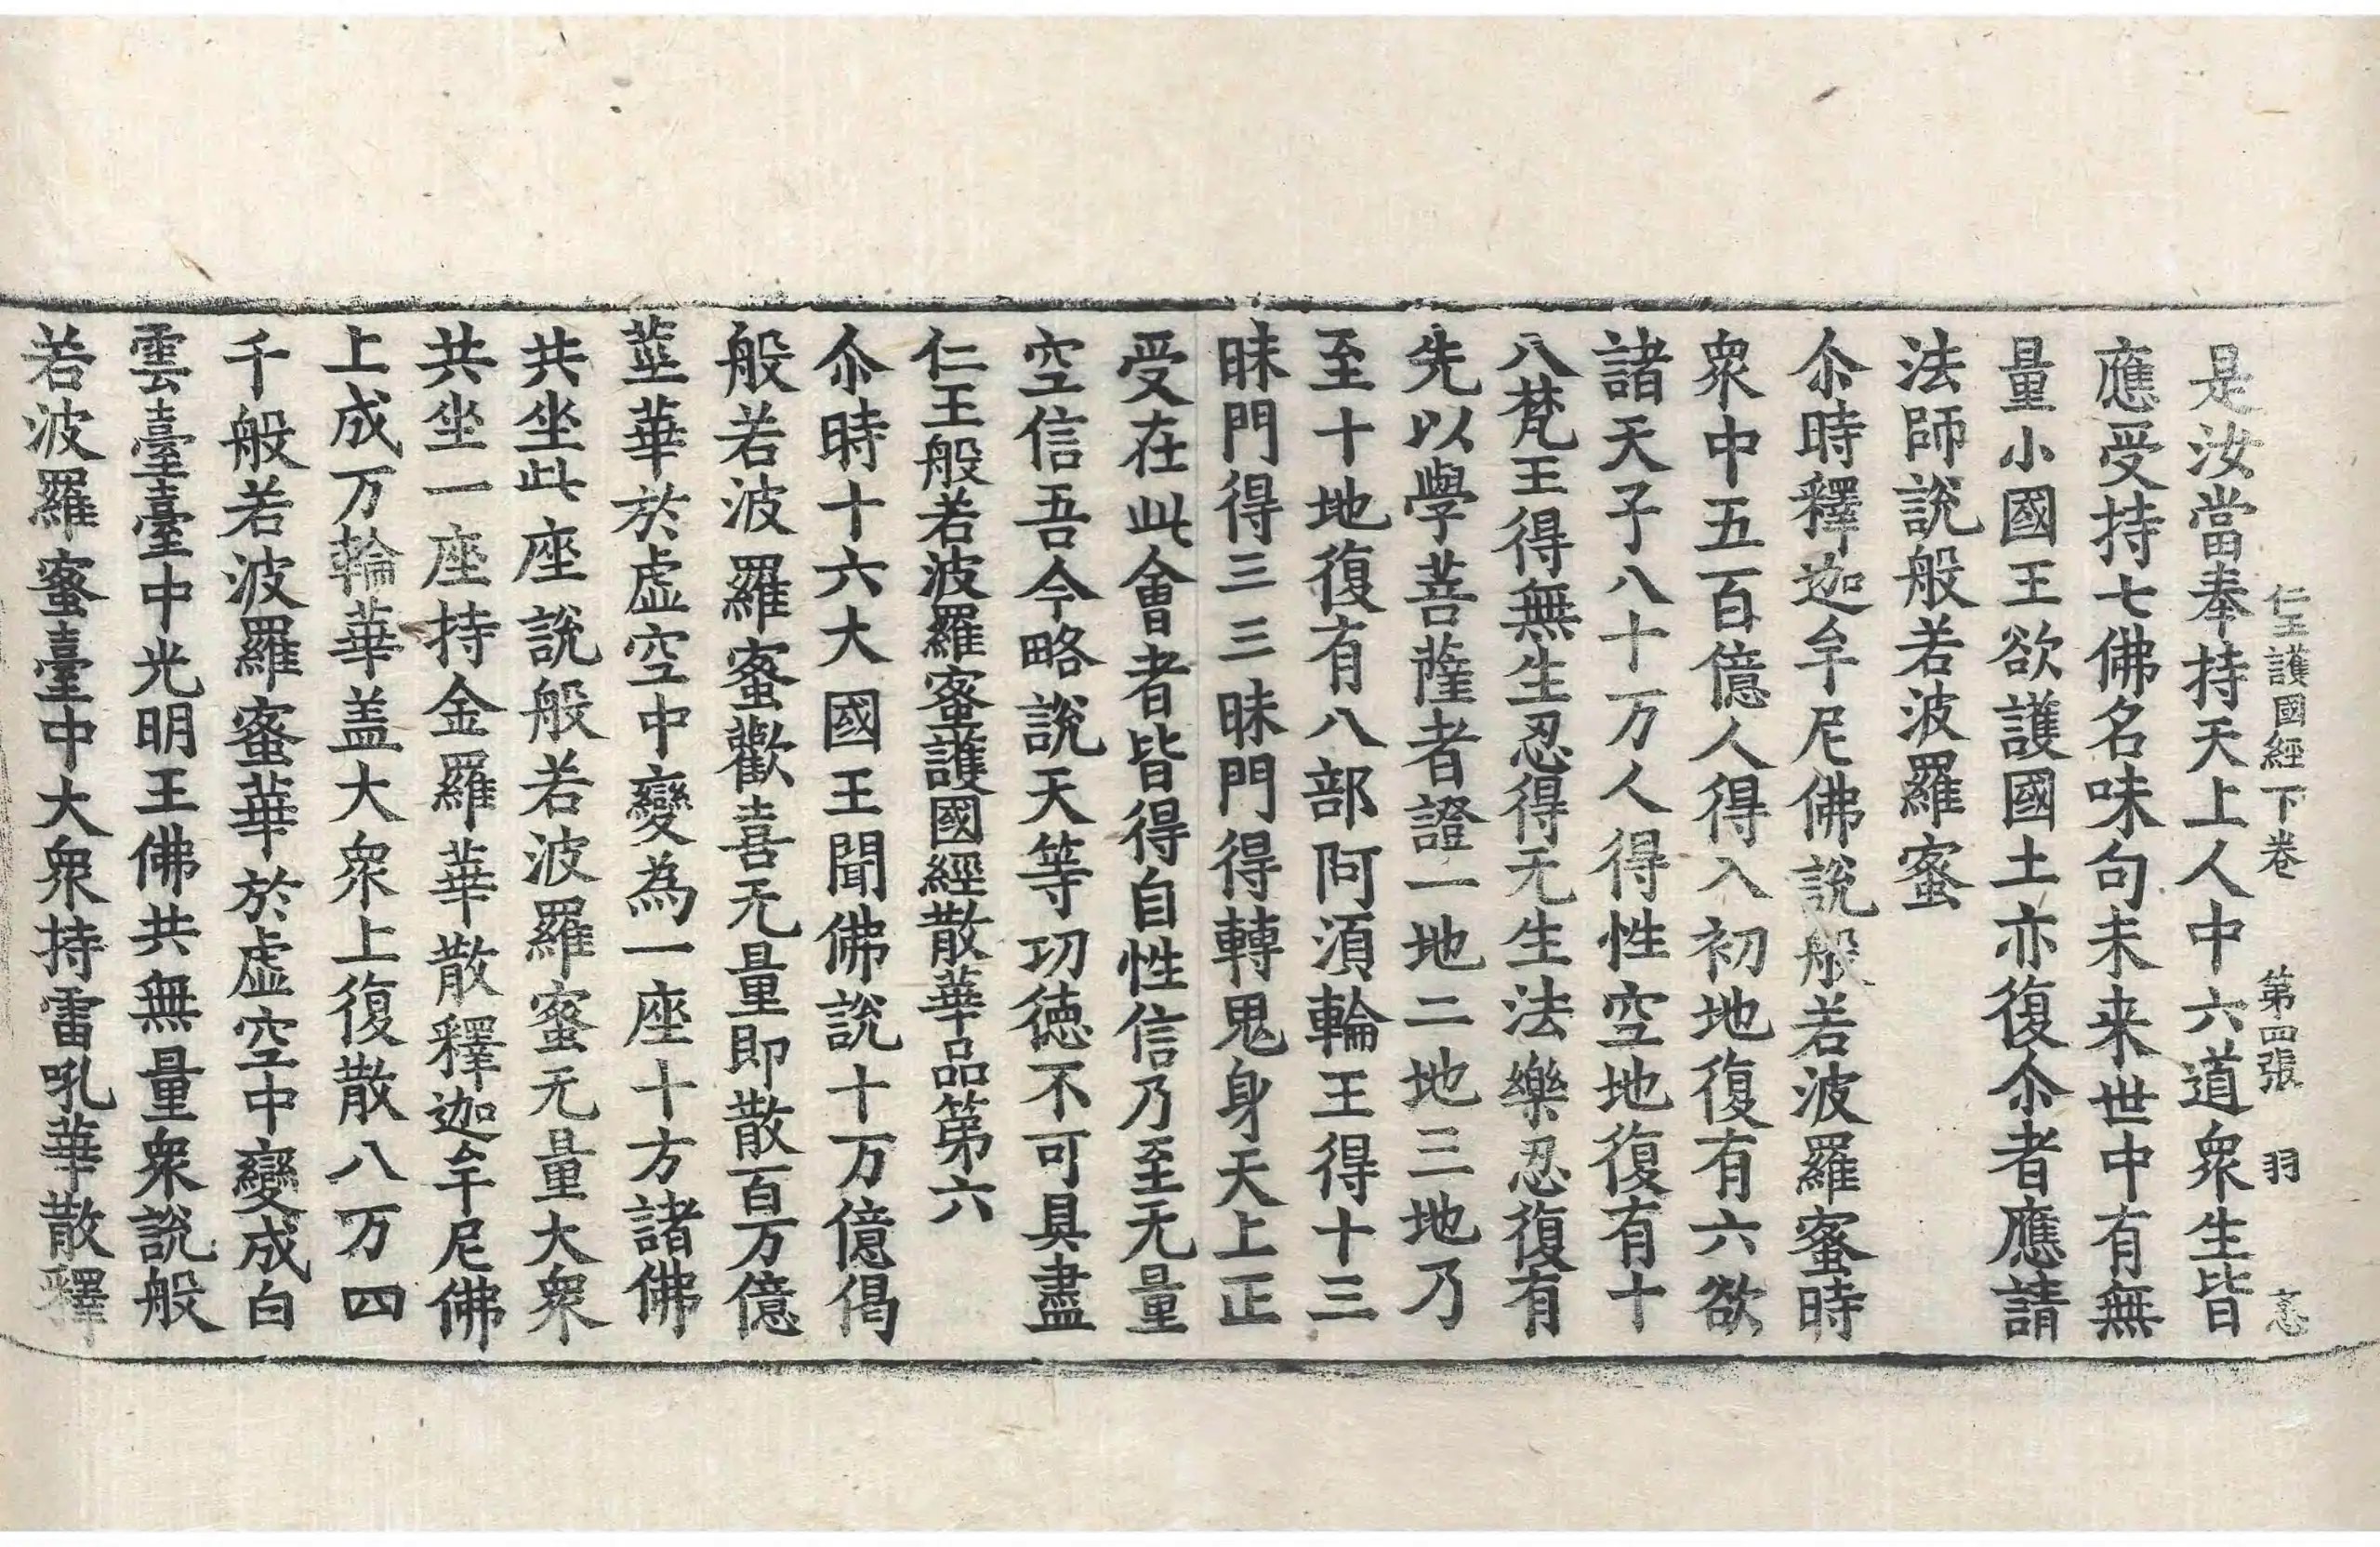 仁王護國經下卷 第四張 羽
是汝當奉持天上人中六道衆生皆
應受持七佛名味句未来世中有無
量小國王欲護國土亦復尒者應請
法師説般若波羅蜜
尒時釋迦牟尼佛說般若波羅蜜時
衆中五百億人得入初地復有六欲
諸天子八十万人得性空地復有十
八梵王得無生忍得无生法樂忍復有
先以學菩薩者證一地二地三地乃
至十地復有八部阿湏輪王得十三
昧門得三三昧門得轉鬼身天上正
受在此會者皆得自性信乃至无量
空信吾今略說天等功德不可具盡
仁王般若波羅蜜護國經散華品第六
尒時十六大國王聞佛說十万億偈
般若波羅蜜歡喜无量即散百万億
莖華於虛空中變為一座十方諸佛
共坐此座說般若波羅蜜无量大衆
共坐一座持金羅華散釋迦牟尼佛
上成万輪華盖大衆上復散八万四
千般若波羅蜜華於虛空中變成白
雲臺臺中光明王佛共無量衆說般
若波羅蜜臺中大衆持雷吼華散釋